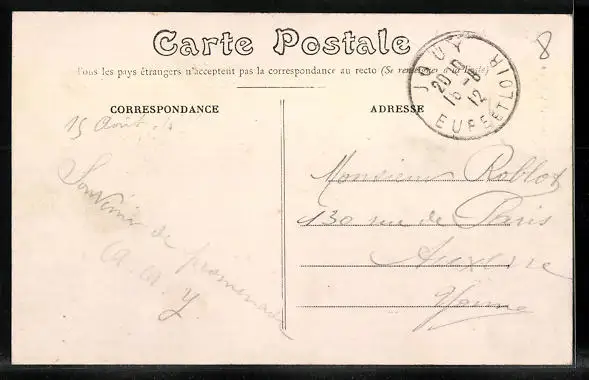 Carte Postale
Tous les pays étrangers n'acceptent pas la correspondance au recto (Se renseigner à la Poste)
CORRESPONDANCE
ADRESSE
JOUY
EURE ET LOIR
20 30
16 - 8
12
8
15 Août
Souvenir de promenade
Monsieur Roblot
130 rue de Paris
Auxerre
Yonne